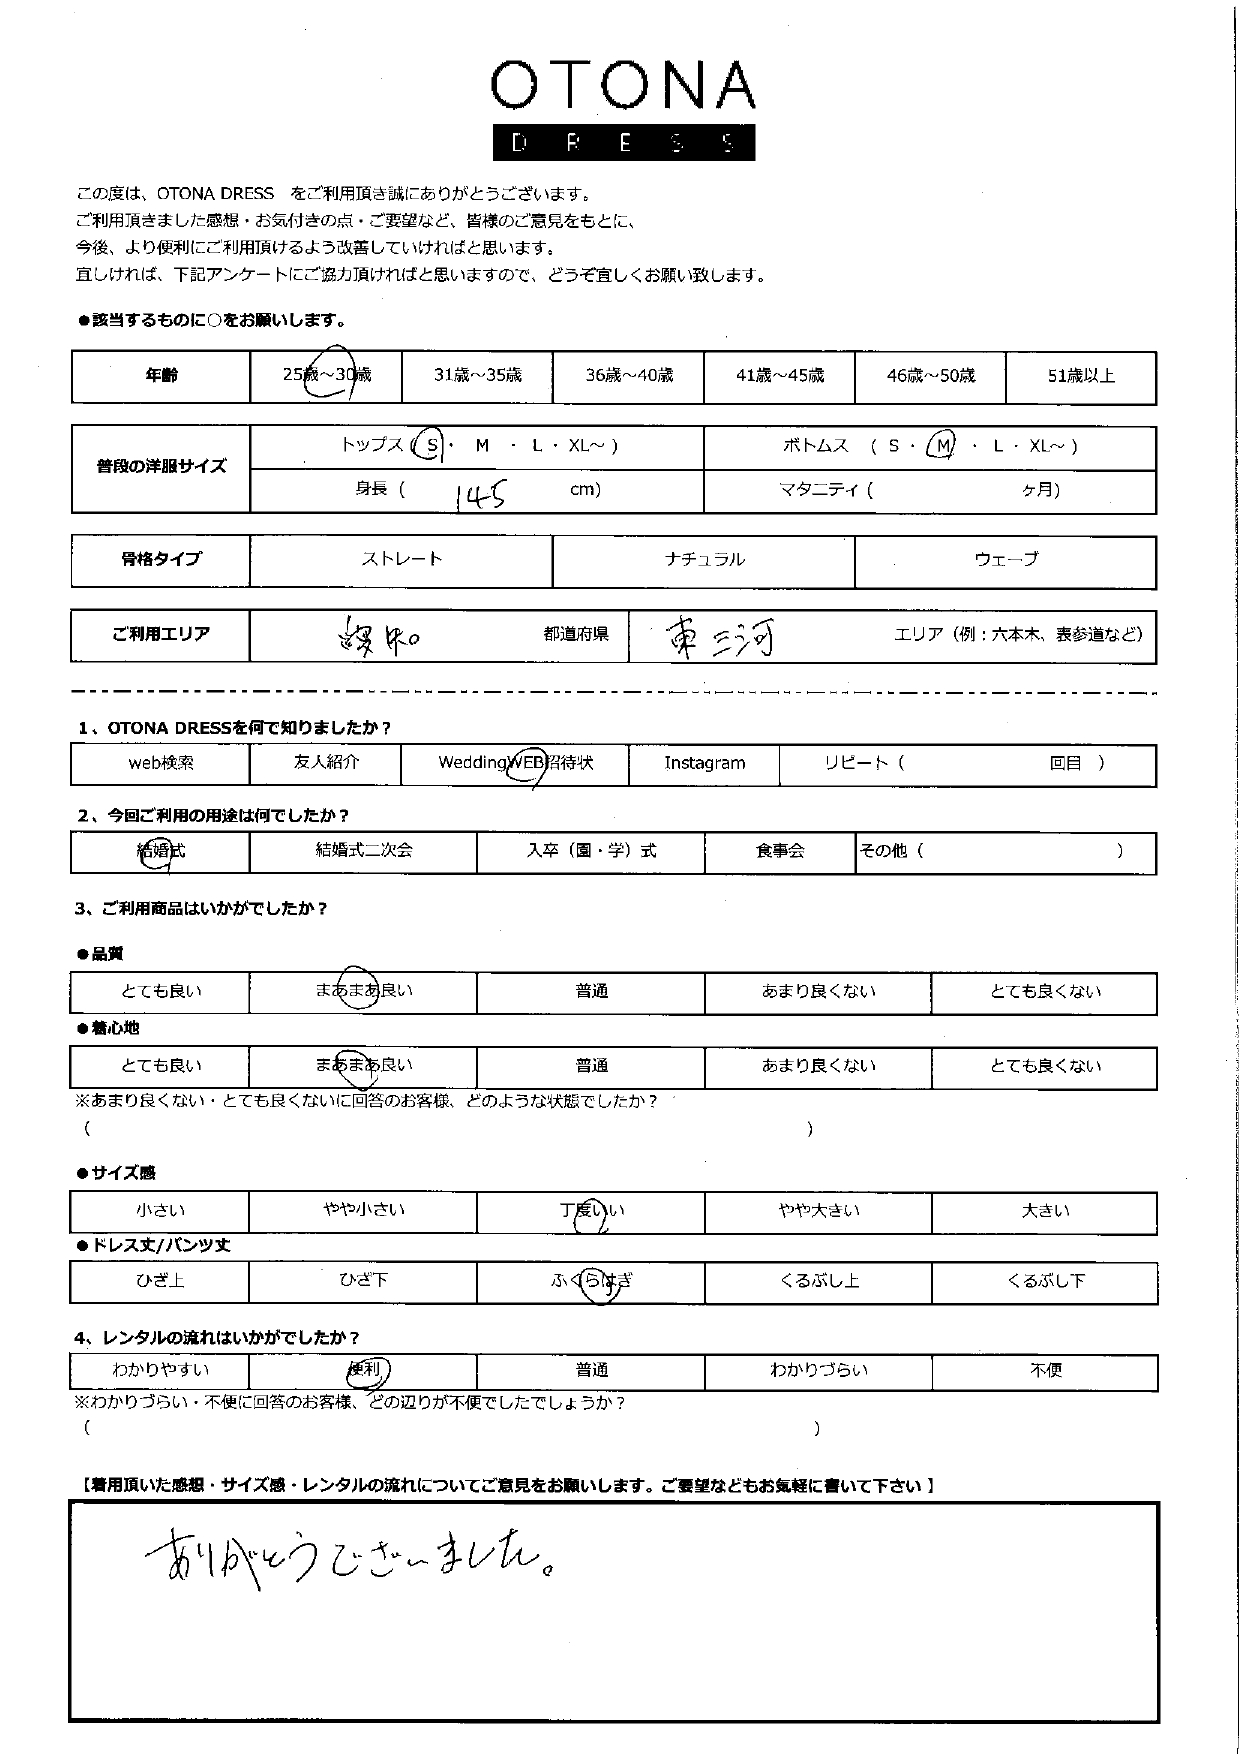 OTONA
DRESS
この度は、OTONA DRESS をご利用頂き誠にありがとうございます。
ご利用頂きました感想・お気付きの点・ご要望など、皆様のご意見をもとに、
今後、より便利にご利用頂けるよう改善していければと思います。
宜しければ、下記アンケートにご協力頂ければと思いますので、どうぞ宜しくお願い致します。
●該当するものに○をお願いします。
年齢 25歳～30歳 31歳～35歳 36歳～40歳 41歳～45歳 46歳～50歳 51歳以上
普段の洋服サイズ トップス ( S ・ M ・ L ・ XL～ ) ボトムス ( S ・ M ・ L ・ XL～ )
身長 ( 145 cm) マタニティ ( ヶ月)
骨格タイプ ストレート ナチュラル ウェーブ
ご利用エリア 愛知 都道府県 東三河 エリア（例：六本木、表参道など）
1、OTONA DRESSを何で知りましたか？
web検索 友人紹介 WeddingWEB招待状 Instagram リピート ( 回目 )
2、今回ご利用の用途は何でしたか？
結婚式 結婚式二次会 入卒（園・学）式 食事会 その他 ( )
3、ご利用商品はいかがでしたか？
●品質
とても良い まあまあ良い 普通 あまり良くない とても良くない
●着心地
とても良い まあまあ良い 普通 あまり良くない とても良くない
※あまり良くない・とても良くないに回答のお客様、どのような状態でしたか？
( )
●サイズ感
小さい やや小さい 丁度いい やや大きい 大きい
●ドレス丈/パンツ丈
ひざ上 ひざ下 ふくらはぎ くるぶし上 くるぶし下
4、レンタルの流れはいかがでしたか？
わかりやすい 便利 普通 わかりづらい 不便
※わかりづらい・不便に回答のお客様、どの辺りが不便でしたでしょうか？
( )
【着用頂いた感想・サイズ感・レンタルの流れについてご意見をお願いします。ご要望などもお気軽に書いて下さい】
ありがとうございました。